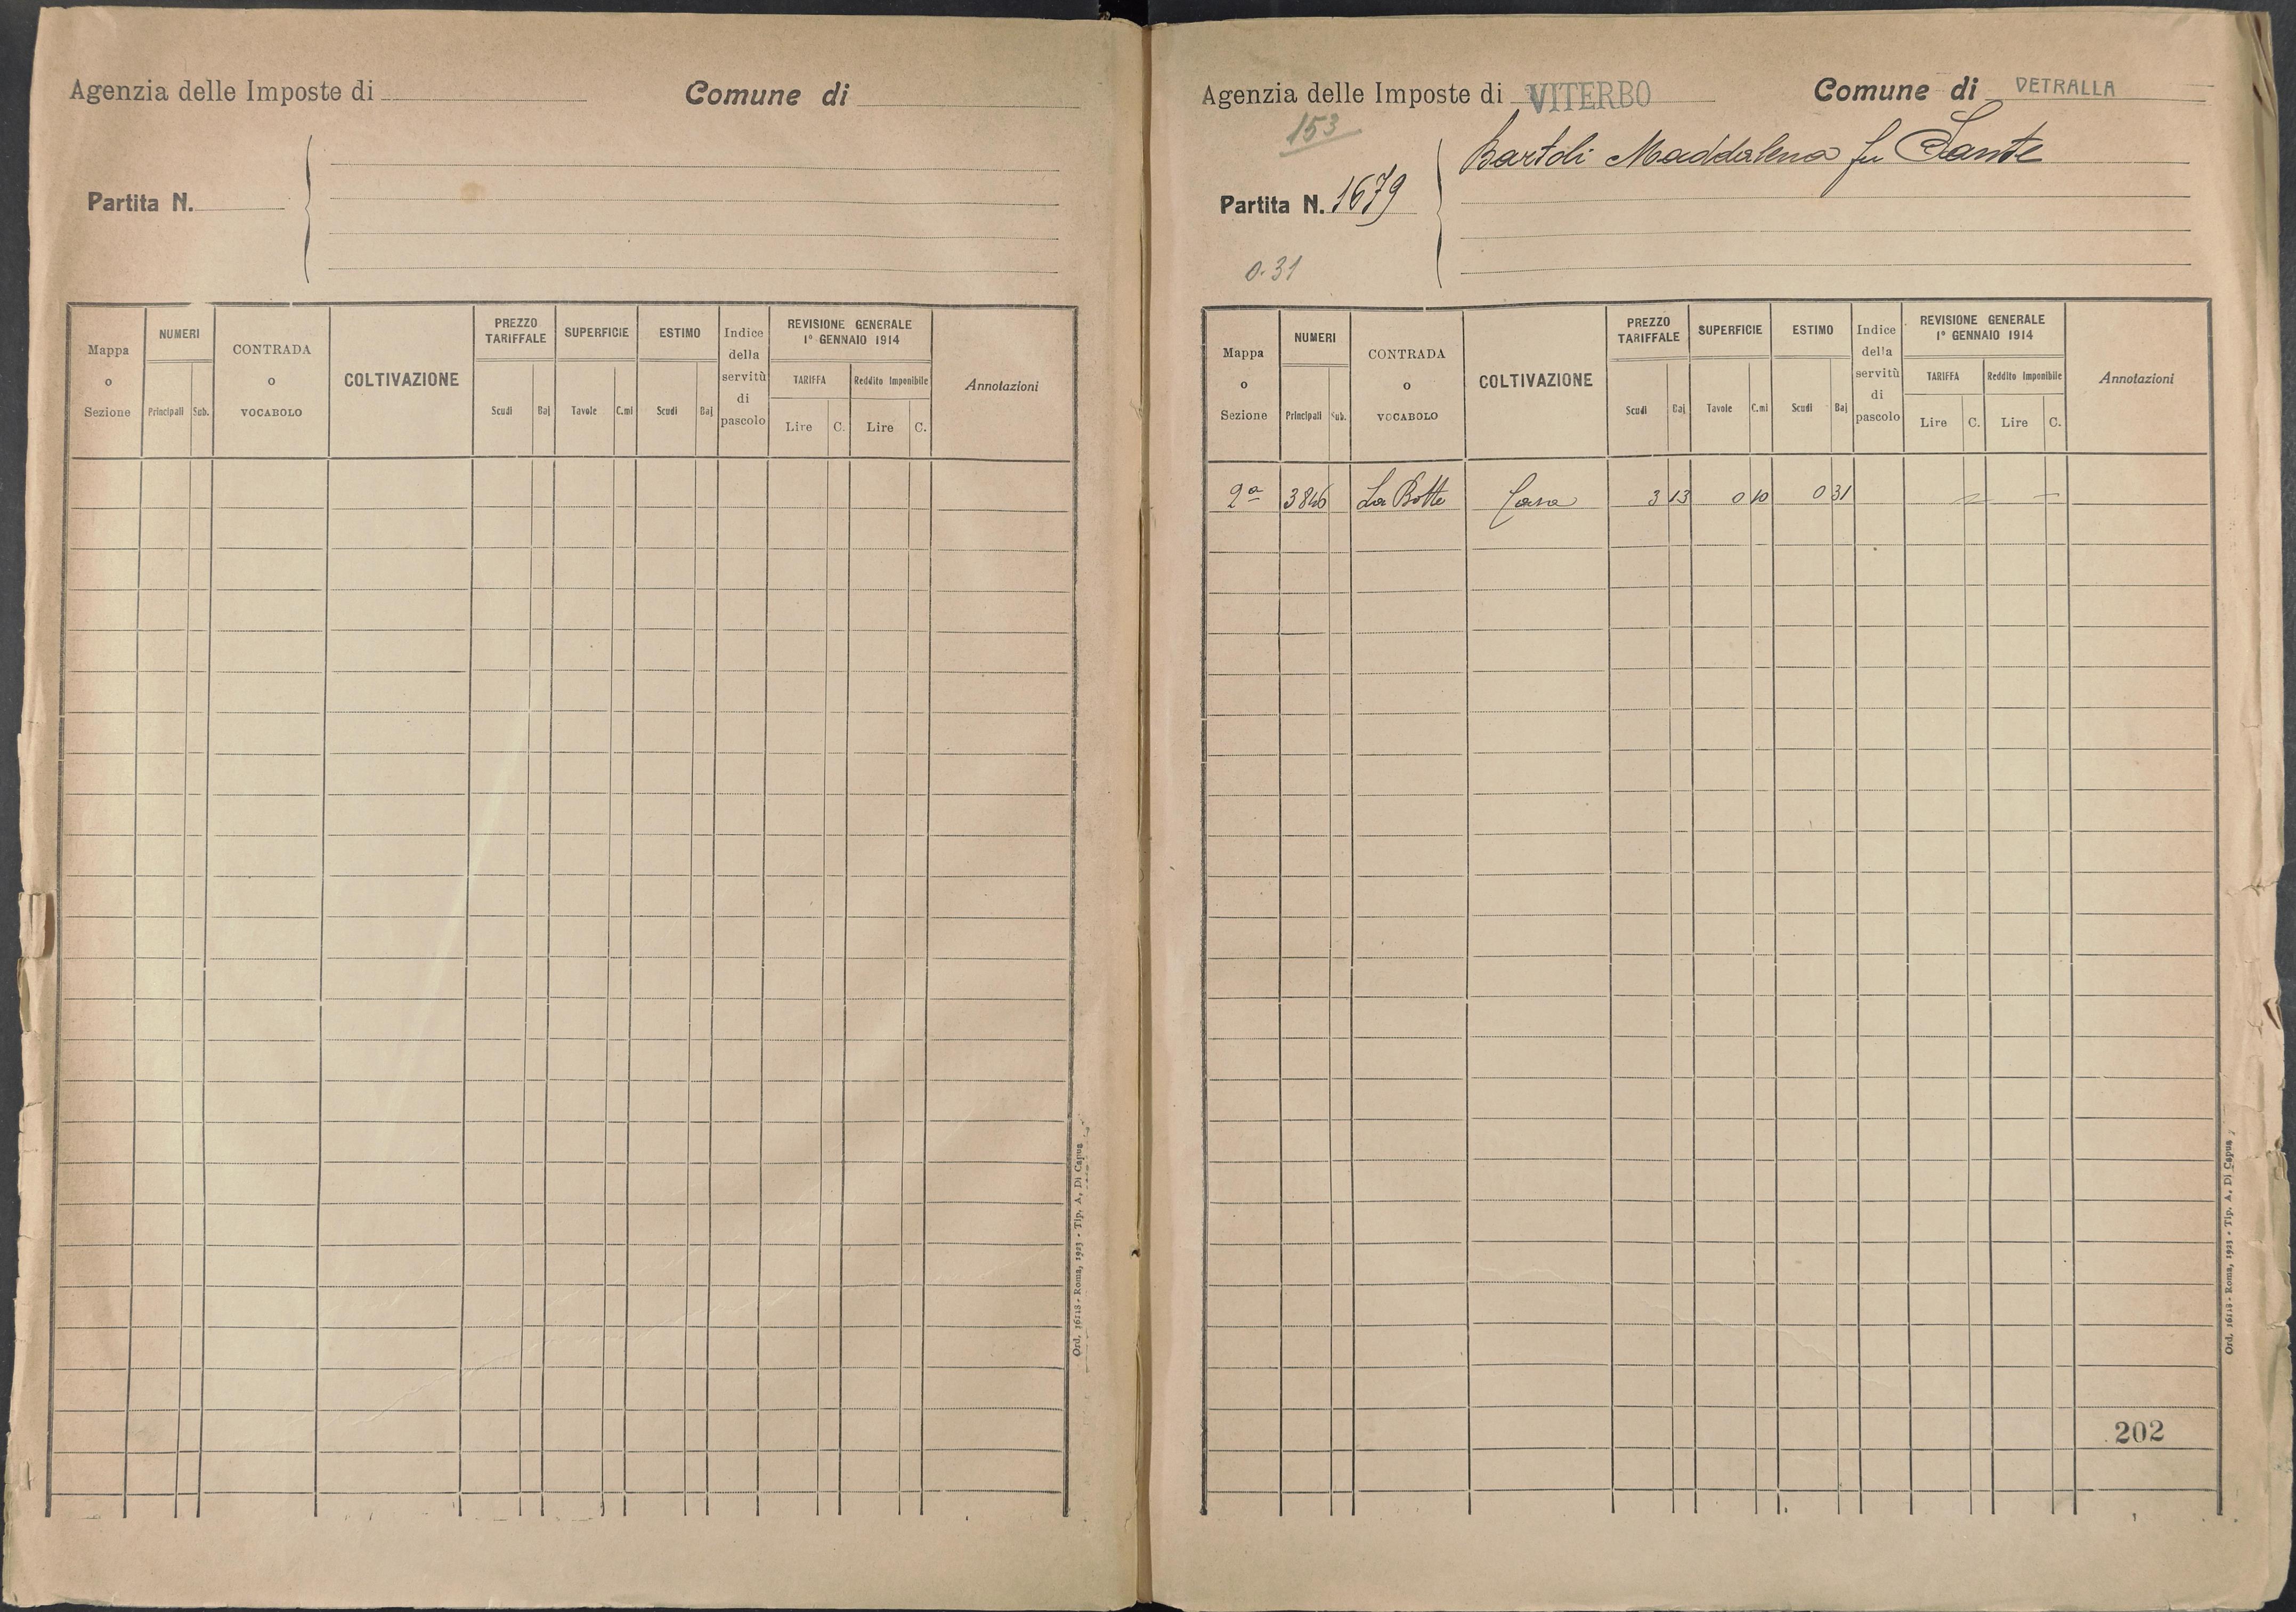 Agenzia delle Imposte di
Comune di
Partita N.
Mappa o Sezione
NUMERI
Principali Sub.
CONTRADA o VOCABOLO
COLTIVAZIONE
PREZZO TARIFFALE
Scudi Baj
SUPERFICIE
Tavole C.mi
ESTIMO
Scudi Baj
Indice della servitù di pascolo
REVISIONE GENERALE
1° GENNAIO 1914
TARIFFA
Lire C.
Reddito Imponibile
Lire C.
Annotazioni
Ord. 16118 - Roma, 1923 - Tip. A. Di Capua
Agenzia delle Imposte di VITERBO
Comune di VETRALLA
153
Bartoli Maddalena fu Sante
Partita N. 1679
0.31
Mappa o Sezione
NUMERI
Principali Sub.
CONTRADA o VOCABOLO
COLTIVAZIONE
PREZZO TARIFFALE
Scudi Baj
SUPERFICIE
Tavole C.mi
ESTIMO
Scudi Baj
Indice della servitù di pascolo
REVISIONE GENERALE
1° GENNAIO 1914
TARIFFA
Lire C.
Reddito Imponibile
Lire C.
Annotazioni
2a 3846 La Botte Casa 3 13 0 10 0 31 — —
202
Ord. 16118 - Roma, 1923 - Tip. A. Di Capua